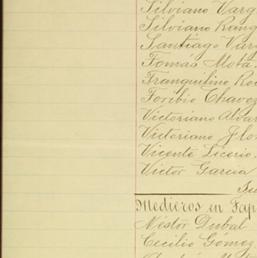 Silviano Varg
Silviano Rang
Santiago Var
Tomás Mota
Tranquilino Ro
Toribio Chavez
Victoriano Alvar
Victoriano Flo
Vicente Licerio
Victor Garcia
Medieros en Tap
Nestor Dubal
Cecilio Gomez